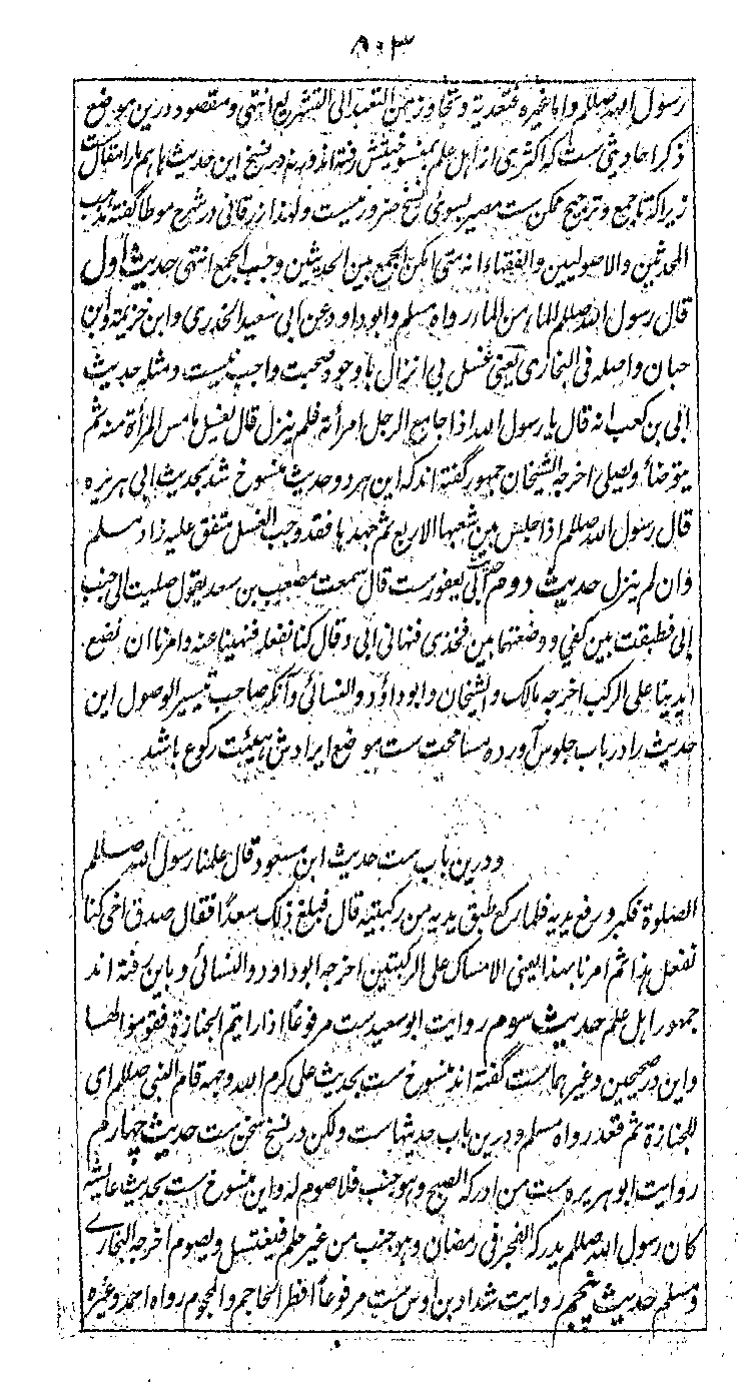 ۵۰۳
رسول الله صللم واما غيره فمتعدية وتجاوز من التعبد الى التشريع انتهى ومقصود درین موضع
ذکر احادیثی ست که اکثری از اهل علم بمنسوخیتش رفته اند ورنه در نسخ این حدیث ها هم ما را مقال ست
زیرا که تا جمع و ترجیح ممکن ست مصیر بسوی نسخ ضرور نیست ولهذا زرقانی در شرح موطا گفته مذهب
المحدثين والاصوليين والفقهاء انه متى امكن الجمع بين الحديثين وجب الجمع انتهى حدیث اول
قال رسول الله صللم الماء من الماء رواه مسلم وابوداود عن ابى سعيد الخدرى وابن خزيمة وابن
حبان واصله فى البخارى یعنی غسل بی انزال با وجود صحبت واجب نیست ومثله حدیث
ابى بن كعب انه قال يا رسول الله اذا جامع الرجل امرأته فلم ينزل قال يغسل ما مس المرأة منه ثم
يتوضأ ويصلى اخرجه الشيخان جمهور گفته اند که این هر دو حدیث منسوخ شد بحدیث ابی هریره
قال رسول الله صللم اذا جلس بين شعبها الاربع ثم جهدها فقد وجب الغسل متفق عليه زاد مسلم
وان لم ينزل حدیث دوم حدیث ابی یعفورست قال سمعت مصعب بن سعد يقول صليت الى جنب
ابى فطبقت بين كفى ووضعتهما بين فخذى فنهانى ابى وقال كنا نفعله فنهينا عنه وامرنا ان نضع
ايدينا على الركب اخرجه مالك والشيخان وابوداؤد والنسائى وآنکه صاحب تیسیر الوصول این
حدیث را در باب جلوس آورده مسامحت ست موضع ایرادش هیئت رکوع باشد
ودرین باب ست حدیث ابن مسعود قال علمنا رسول الله صللم
الصلوة فكبر ورفع يديه فلما ركع طبق يديه بين ركبتيه قال فبلغ ذلك سعدًا فقال صدق اخى كنا
نفعل هذا ثم امرنا بهذا يعنى الامساك على الركبتين اخرجه ابوداود والنسائى وباین رفته اند
جمهور اهل علم حدیث سوم روایت ابوسعیدست مرفوعًا اذا رايتم الجنازة فقوموا لها
واین در صحیحین وغیرهماست گفته اند منسوخ ست بحدیث علی کرم الله وجهه قام النبى صللم اى
للجنازة ثم قعد رواه مسلم ودرین باب حدیثهاست ولکن در نسخ سخن ست حدیث چهارم
روایت ابوهریره ست من ادركه الصبح وهو جنب فلا صوم له واین منسوخ ست بحدیث عائشه
كان رسول الله صللم يدركه الفجر فى رمضان وهو جنب من غير حلم فيغتسل ويصوم اخرجه البخارى
ومسلم حدیث پنجم روایت شداد بن اوس ست مرفوعًا افطر الحاجم والمحجوم رواه احمد وغيره